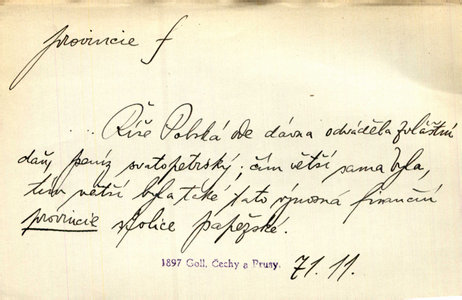 provincie f
... Říše Polská ode dávna odváděla zvláštní
daň, peníz svatopetrský; čím větší sama byla,
tím větší byla také tato výnosná finanční
provincie stolice papežské.
1897 Goll, Čechy a Prusy. 71.11.